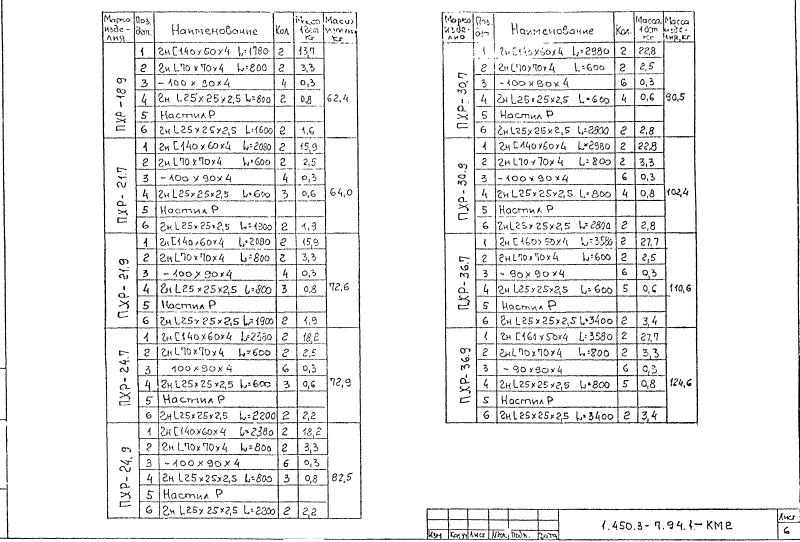 Марка изделия Поз. дет. Наименование Кол Масса 1 дет кг Масса изделия, кг
ПХР-18.9
1 Гн [140×60×4 L=1780 2 13,7
2 Гн L70×70×4 L=800 2 3,3
3 -100×90×4 4 0,3
4 Гн L25×25×2,5 L=800 2 0,8 62,4
5 Настил Р
6 Гн L25×25×2,5 L=1600 2 1,6
ПХР-21.7
1 Гн [140×60×4 L=2080 2 15,9
2 Гн L70×70×4 L=600 2 2,5
3 -100×90×4 4 0,3
4 Гн L25×25×2,5 L=600 3 0,6 64,0
5 Настил Р
6 Гн L25×25×2,5 L=1900 2 1,9
ПХР-21.9
1 Гн [140×60×4 L=2080 2 15,9
2 Гн L70×70×4 L=800 2 3,3
3 -100×90×4 4 0,3
4 Гн L25×25×2,5 L=800 3 0,8 72,6
5 Настил Р
6 Гн L25×25×2,5 L=1900 2 1,9
ПХР-24.7
1 Гн [140×60×4 L=2380 2 18,2
2 Гн L70×70×4 L=600 2 2,5
3 100×90×4 6 0,3
4 Гн L25×25×2,5 L=600 3 0,6 72,9
5 Настил Р
6 Гн L25×25×2,5 L=2200 2 2,2
ПХР-24.9
1 Гн [140×60×4 L=2380 2 18,2
2 Гн L70×70×4 L=800 2 3,3
3 -100×90×4 6 0,3
4 Гн L25×25×2,5 L=800 3 0,8 82,5
5 Настил Р
6 Гн L25×25×2,5 L=2200 2 2,2
Марка изделия Поз. дет. Наименование Кол. Масса, 1 дет кг Масса изделия, кг
ПХР-30.7
1 Гн [140×60×4 L=2980 2 22,8
2 Гн L70×70×4 L=600 2 2,5
3 -100×90×4 6 0,3
4 Гн L25×25×2,5 L=600 4 0,6 90,5
5 Настил Р
6 Гн L25×25×2,5 L=2800 2 2,8
ПХР-30.9
1 Гн [140×60×4 L=2980 2 22,8
2 Гн L70×70×4 L=800 2 3,3
3 -100×90×4 6 0,3
4 Гн L25×25×2,5 L=800 4 0,8 102,4
5 Настил Р
6 Гн L25×25×2,5 L=2800 2 2,8
ПХР-36.7
1 Гн [160×50×4 L=3580 2 27,7
2 Гн L70×70×4 L=600 2 2,5
3 -90×90×4 6 0,3
4 Гн L25×25×2,5 L=600 5 0,6 110,6
5 Настил Р
6 Гн L25×25×2,5 L=3400 2 3,4
ПХР-36.9
1 Гн [160×50×4 L=3580 2 27,7
2 Гн L70×70×4 L=800 2 3,3
3 -90×90×4 6 0,3
4 Гн L25×25×2,5 L=800 5 0,8 124,6
5 Настил Р
6 Гн L25×25×2,5 L=3400 2 3,4
Изм Кол.уч Лист №док. Подп. Дата
1.450.3-7.94.1-КМ2
Лист
6